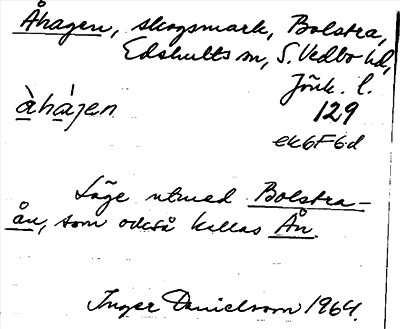 Åhagen, skogsmark, Bolstra,
Edshults sn, S. Vedbo hd,
Jönk. l.
àhájen 129
ek6F6d
Läge utmed Bolstra-
ån, som också kallas Ån.
Inger Danielsson 1964.